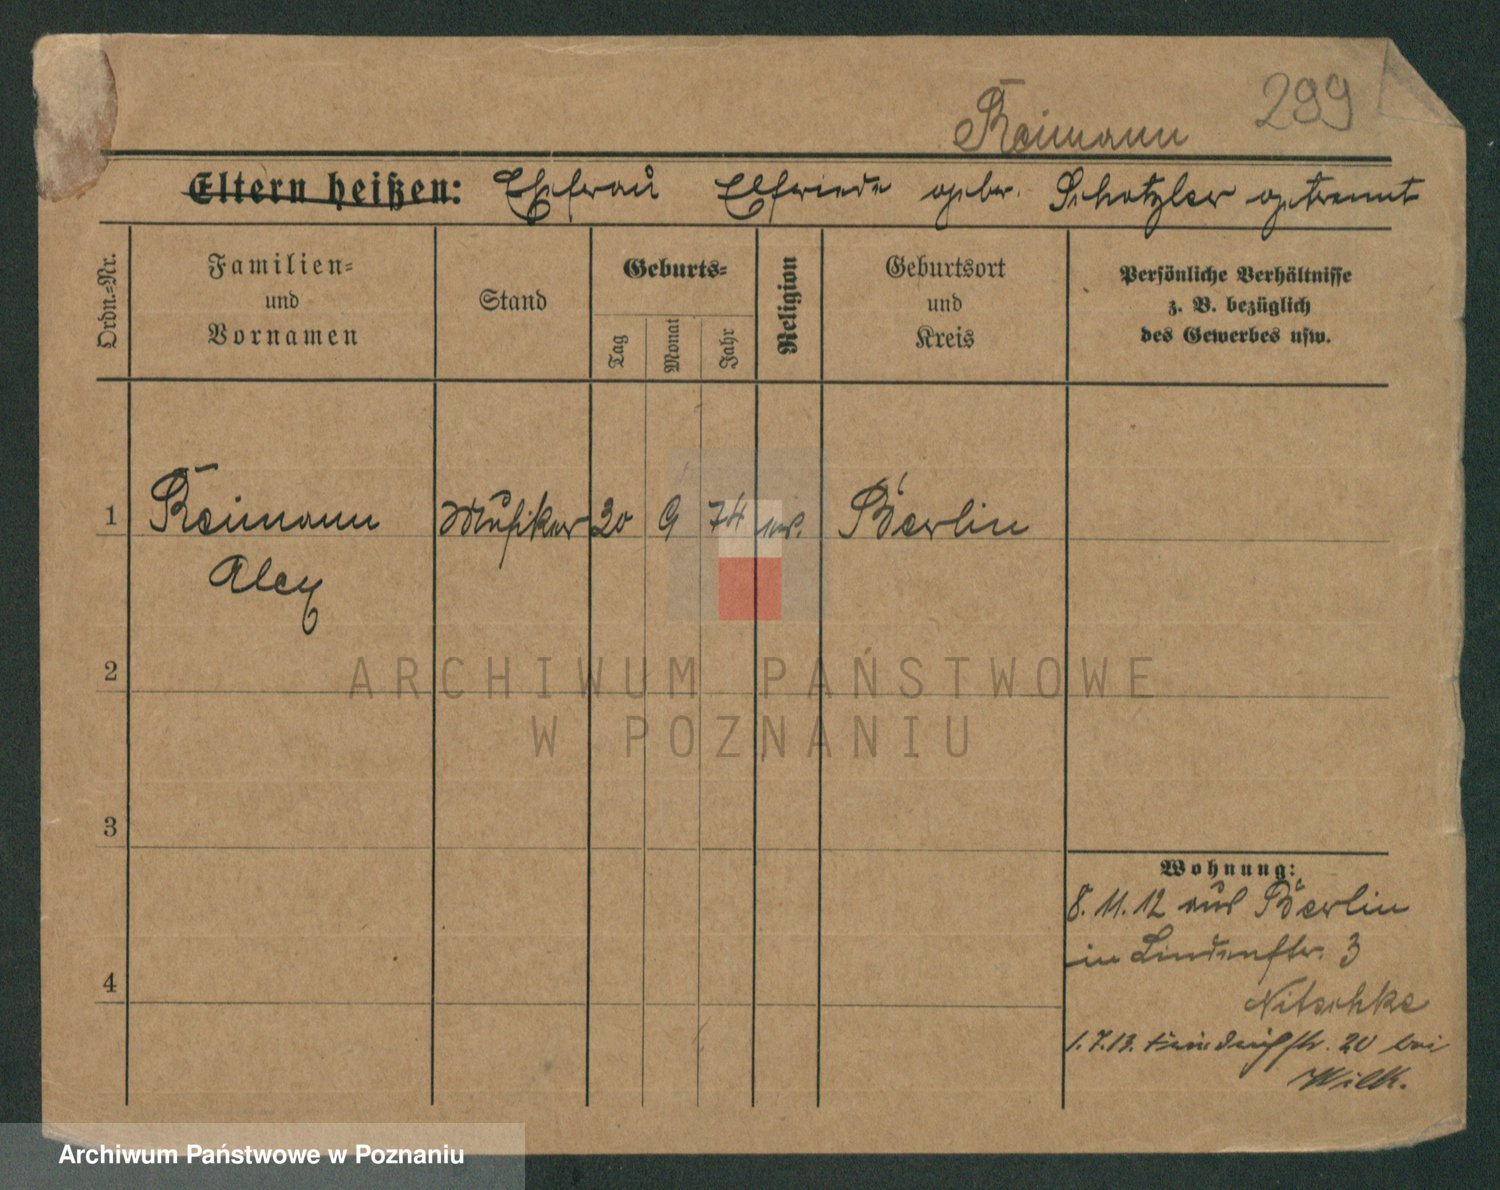 299
Reimann
Eltern heißen: Ehefrau Elfriede gebr. Schatzler getrennt
Ordn.=Nr.
Familien=
und
Vornamen
Stand
Geburts=
Tag
Monat
Jahr
Religion
Geburtsort
und
Kreis
Persönliche Verhältnisse
z. B. bezüglich
des Gewerbes usw.
1 Reimann Musiker 20 9 74 ev. Berlin
Alex
2
3
4
Wohnung:
8.11.12 aus Berlin
in Lindenstr. 3
Nitschke
1.7.13. Friedrichstr. 20 bei
Wilk.
ARCHIWUM PAŃSTWOWE
W POZNANIU
Archiwum Państwowe w Poznaniu